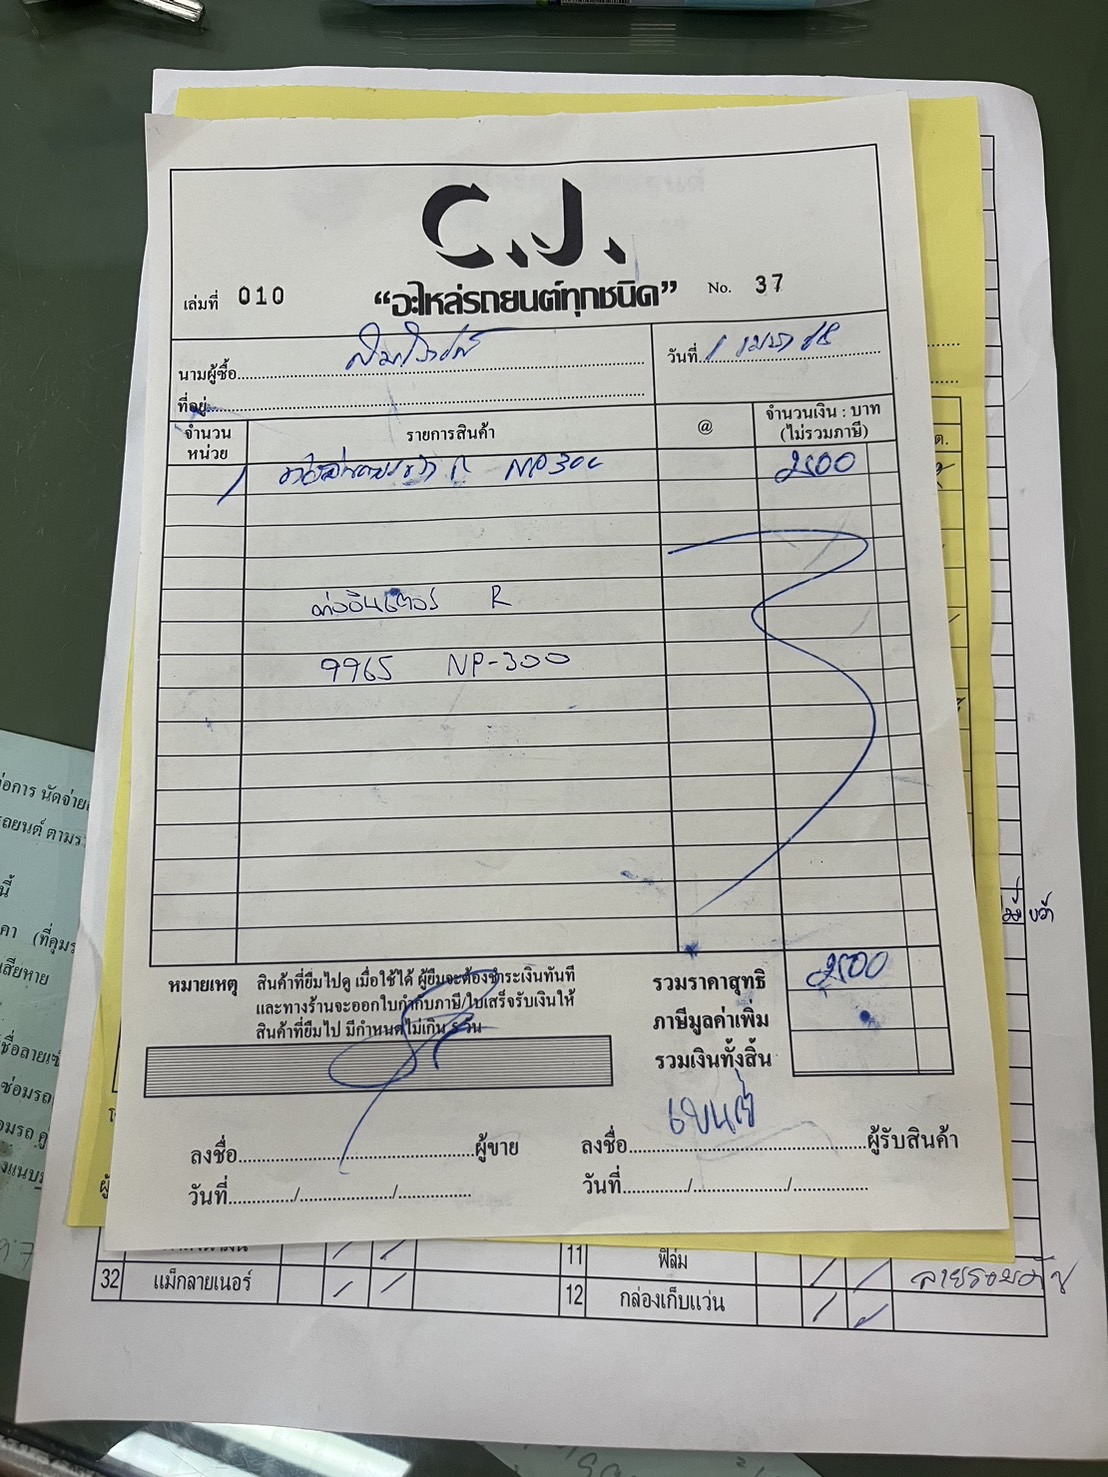 C.J.
เล่มที่ 010
“อะไหล่รถยนต์ทุกชนิด”
No. 37
นามผู้ซื้อ
วันที่ 1 เมษา 68
ที่อยู่
จำนวน หน่วย
รายการสินค้า
@
จำนวนเงิน : บาท (ไม่รวมภาษี)
1 R NP 300 2500
ท่ออินเตอร์ R
9965 NP-300
หมายเหตุ สินค้าที่ยืมไปดู เมื่อใช้ได้ ผู้ยืมจะต้องชำระเงินทันที
และทางร้านจะออกใบกำกับภาษี/ใบเสร็จรับเงินให้
สินค้าที่ยืมไป มีกำหนดไม่เกิน 5 วัน
รวมราคาสุทธิ 2500
ภาษีมูลค่าเพิ่ม
รวมเงินทั้งสิ้น
ลงชื่อ ผู้ขาย
ลงชื่อ ผู้รับสินค้า
วันที่ / /
วันที่ / /
11 ฟิล์ม
32 แม็กลายเนอร์
12 กล่องเก็บแว่น
ลายรอบคัน